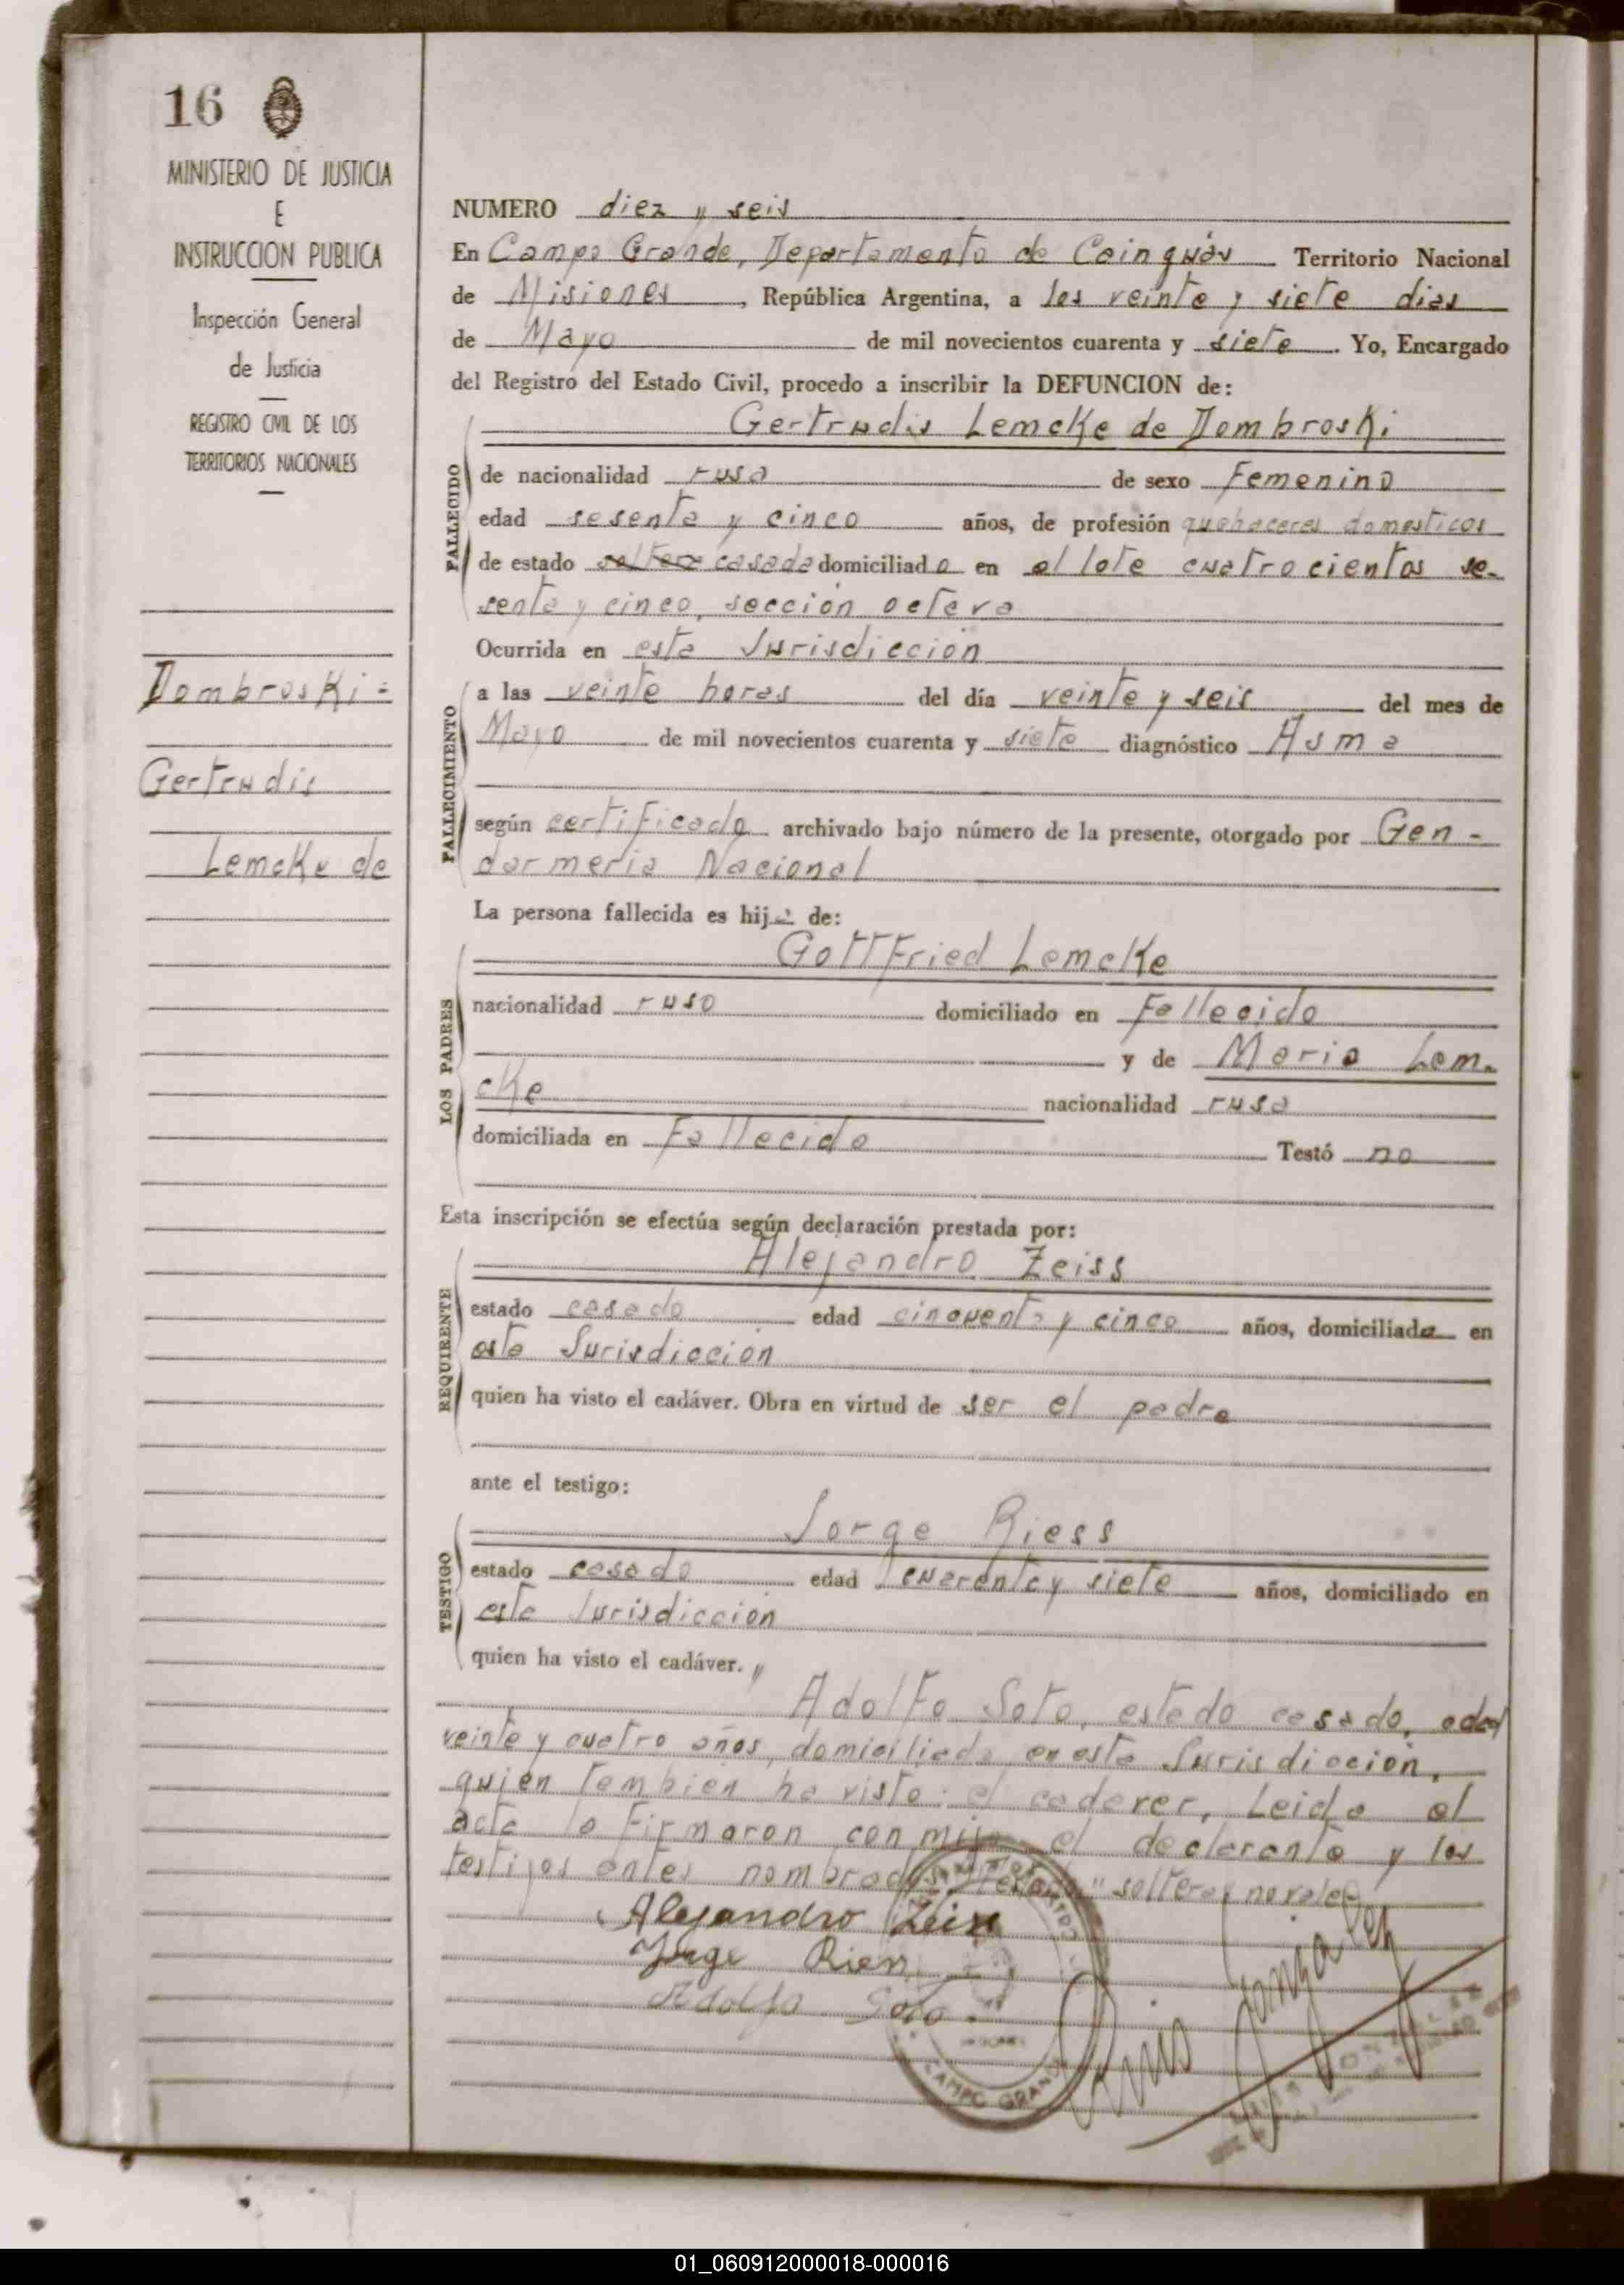 16
MINISTERIO DE JUSTICIA
E
INSTRUCCION PUBLICA
Inspección General
de Justicia
REGISTRO CIVIL DE LOS
TERRITORIOS NACIONALES
Dombroski =
Gertrudis
Lemcke de
NUMERO diez y seis
En Campo Grande, Departamento de Cainguás Territorio Nacional
de Misiones, República Argentina, a los veinte y siete dias
de Mayo de mil novecientos cuarenta y siete. Yo, Encargado
del Registro del Estado Civil, procedo a inscribir la DEFUNCION de:
Gertrudis Lemcke de Dombroski
FALLECIDO
de nacionalidad rusa de sexo Femenino
edad sesenta y cinco años, de profesión quehaceres domesticos
de estado soltera casada domiciliada en el lote cuatrocientos se-
senta y cinco, sección octava
Ocurrida en esta Jurisdicción
FALLECIMIENTO
a las veinte horas del día veinte y seis del mes de
Mayo de mil novecientos cuarenta y siete diagnóstico Asma
según certificado archivado bajo número de la presente, otorgado por Gen-
darmeria Nacional
La persona fallecida es hija de:
LOS PADRES
Gottfried Lemcke
nacionalidad ruso domiciliado en Fallecido
y de Maria Lem-
cke nacionalidad rusa
domiciliada en Fallecida Testó no
Esta inscripción se efectúa según declaración prestada por:
REQUIRENTE
Alejandro Zeiss
estado casado edad cincuenta y cinco años, domiciliado en
esta Jurisdicción
quien ha visto el cadáver. Obra en virtud de ser el padre
ante el testigo:
TESTIGO
Jorge Riess
estado casado edad cuarenta y siete años, domiciliado en
esta Jurisdicción
quien ha visto el cadáver. y
Adolfo Soto, estado casado, edad
veinte y cuatro años, domiciliado en esta Jurisdicción,
quien tambien ha visto el cadaver, Leida el
acta la firmaron conmigo el declarante y los
testigos antes nombrados. Testado "soltera" no vale
Alejandro Zeiss
Jorge Riess
Adolfo Soto
Luis Gonzalez
CAMPO GRANDE
LUIS GONZALEZ
01_060912000018-000016